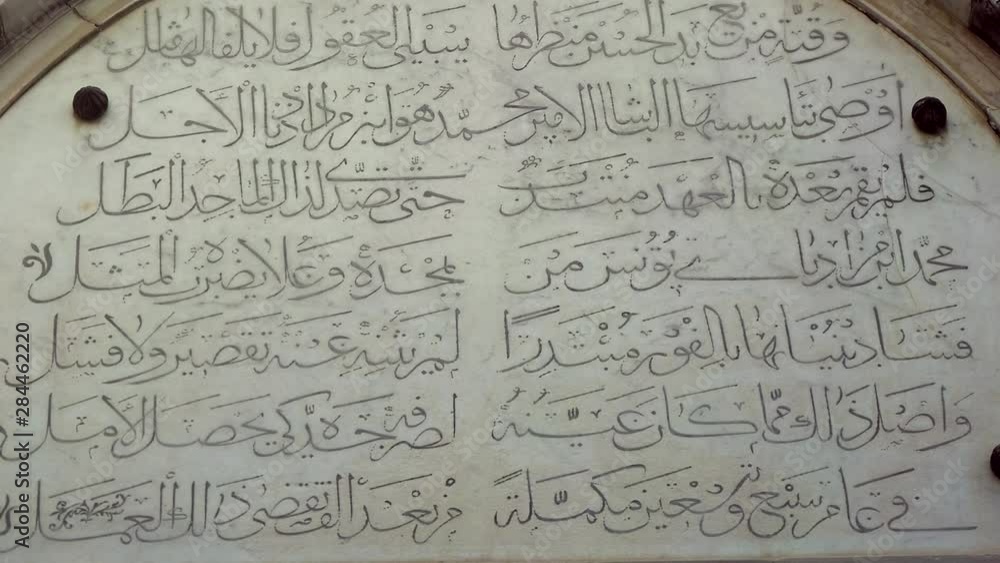 وقبة من بديع الحسن منظرها يسبي العقول فلا يلفى لها
أوصى بتأسيسها الباشا الأمير محمد هو ابن مراد الأجل
فلم يقم بعده بالعهد منتدب حتى تصدى لذاك الماجد البطل
محمد ابن مراد باي تونس من بمجده وعلاه يضرب المثل
فشاد بنيانها بالفور مبتدرا لم يثنه عنه تقصير ولا فشل
واصل ذلك مما كان عينه اصرفه جده كي يحصل الأمل
في عام سبع وتسعين مكملة من بعد ألف تقضى ذلك العمل
Adobe Stock
Adobe Stock | #284462220